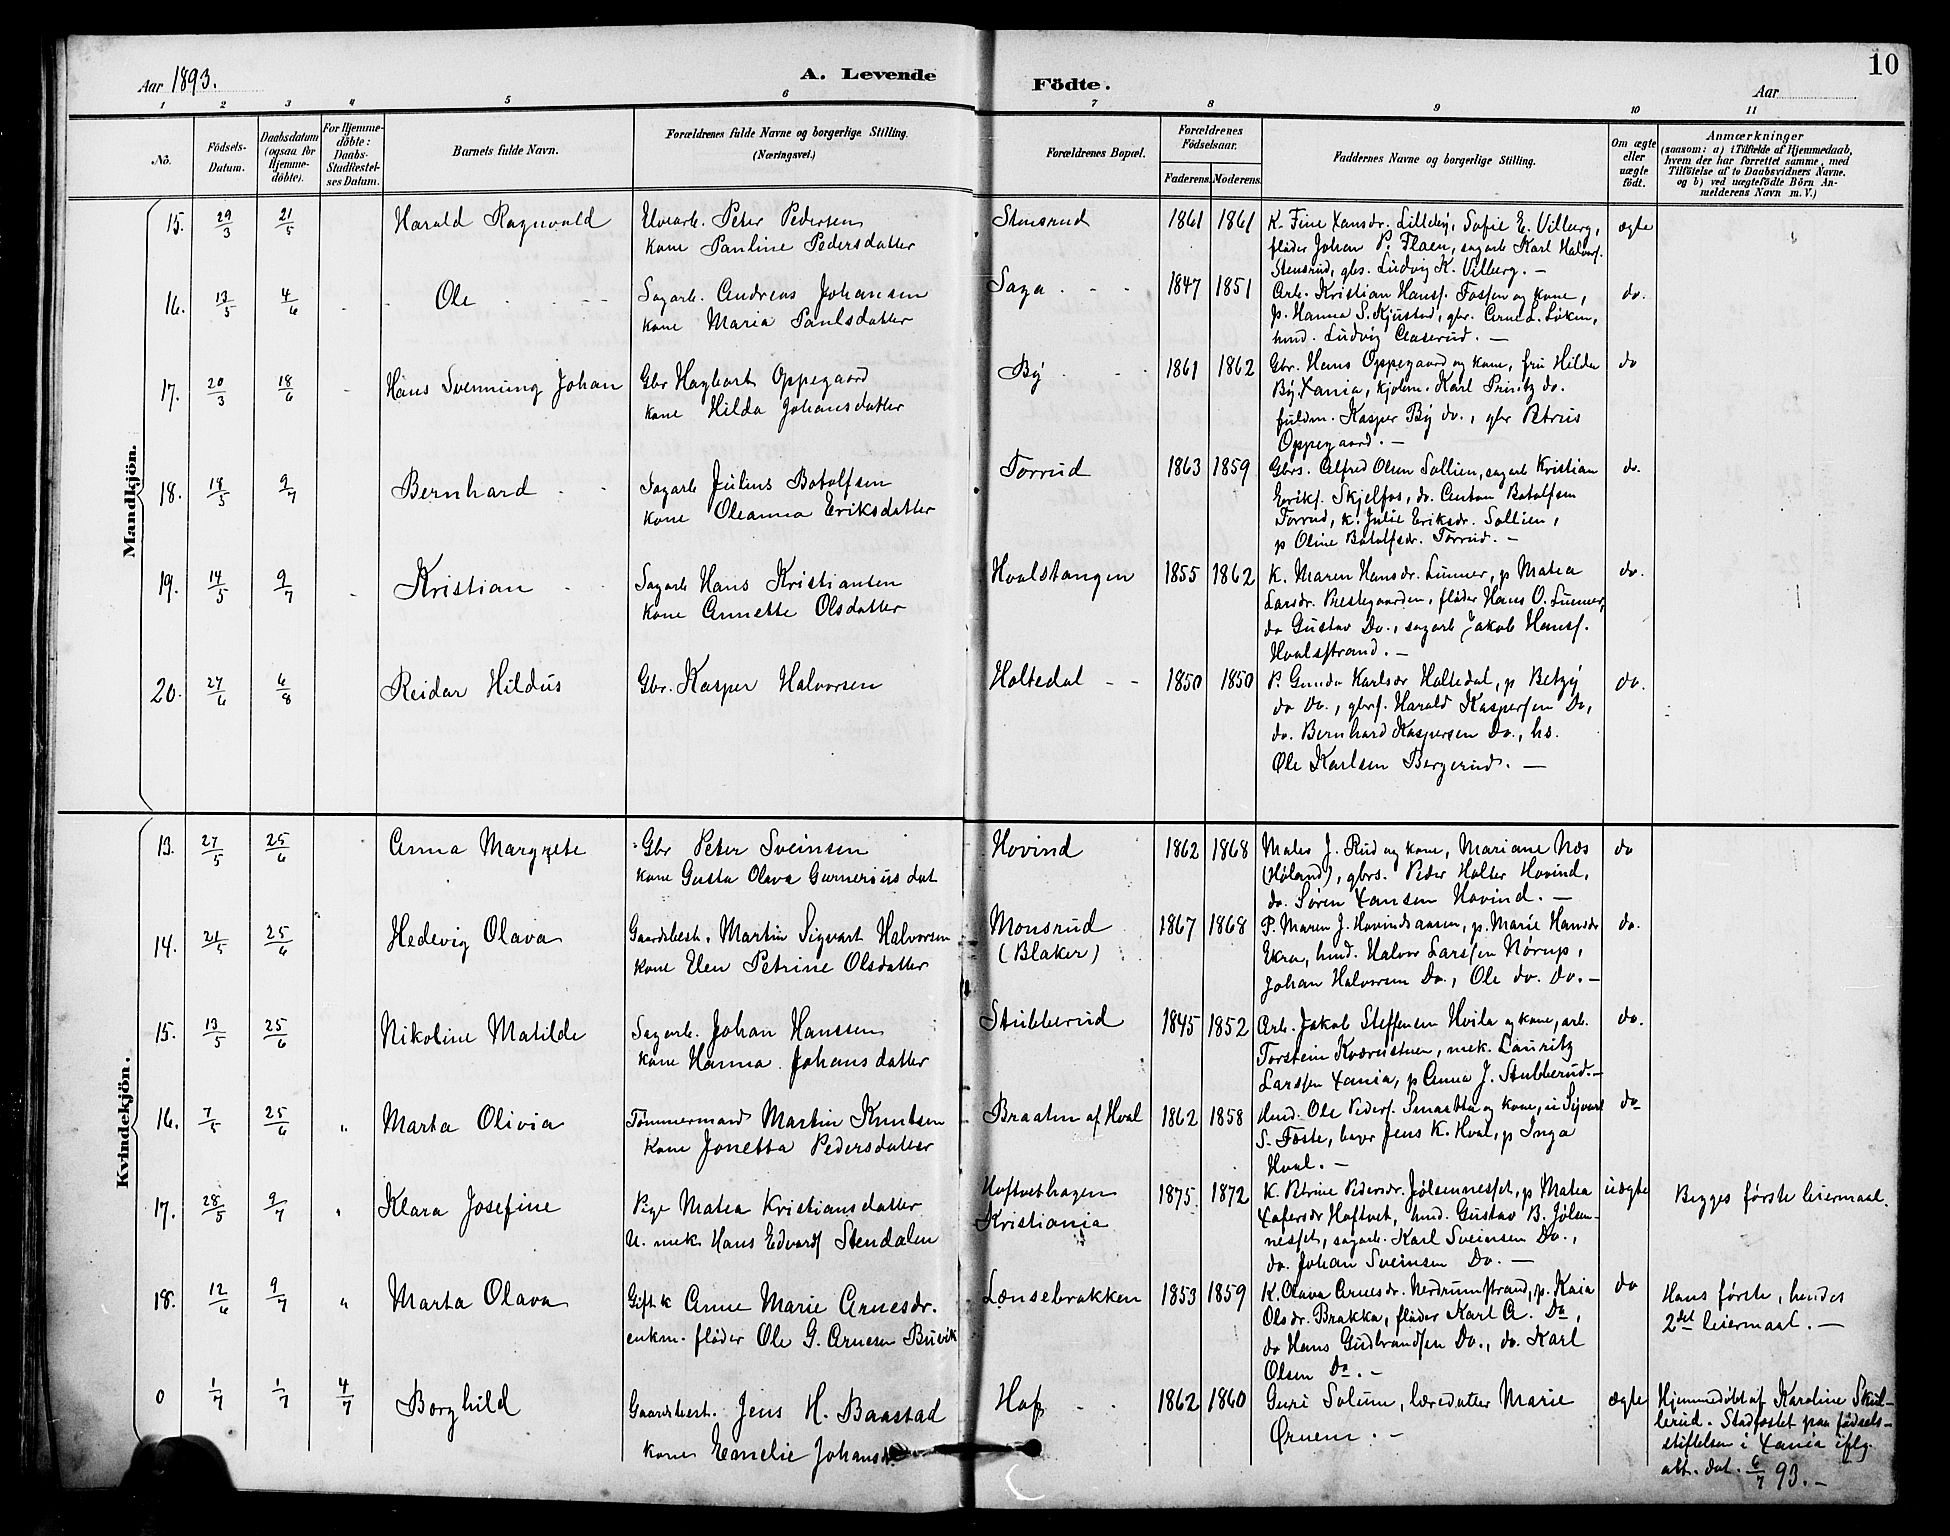 10
Aar 1893.
A. Levende Födte.
Aar
1 2 3 4 5 6 7 8 9 10 11
No.
Födsels-Datum.
Daabsdatum (ogsaa for Hjemme-döbte).
For Hjemme-döbte: Daabs-Stadfæstel-ses Datum.
Barnets fulde Navn.
Forældrenes fulde Navne og borgerlige Stilling. (Næringsvei.)
Forældrenes Bopæl.
Forældrenes Födselsaar.
Faderens. Moderens.
Faddernes Navne og borgerlige Stilling.
Om ægte eller uægte födt.
Anmærkninger
(saasom: a) i Tilfælde af Hjemmedaab,
hvem der har forrettet samme, med
Tilföielse af to Daabsvidners Navne.
og b) ved uægtefödte Börn An-
melderens Navn m. V.)
Mandkjön.
15. 29/3 21/5 Harald Ragnvald
Elvearb. Peter Pedersen
kone Pauline Pedersdatter
Stensrud 1861 1861
K. Fine Xansdr. Lilleby, Sofie E. Vilberg,
fløder Johan P. Flaen, sagarb Karl Halvors.
Stensrud, gbs. Ludvig K. Vilberg. —
ægte
16. 13/5 4/6 Ole
Sagarb. Andreas Johansen
kone Maria Paulsdatter
Saga 1847 1851
Arb. Kristian Hans. Fossen og kone,
p. Hanna S. Kjustad, gbr. Arne L. Løken,
hmd. Ludvig Claserud. —
do.
17. 20/3 18/6 Hans Svennung Johan
Gbr Hagbart Oppegaard
kone Hilda Johansdatter
By 1861 1862
Gbr. Hans Oppegaard og kone, fru Hilda
By Xania, kjøbm. Karl Printz do.
fuldm. Kasper By do., gbr Petrus
Oppegaard. —
do
18. 19/5 9/7 Bernhard
Sagarb Julius Botolfsen
kone Oleanna Eriksdatter
Torrud 1863 1859
Gbrs. Alfred Olsen Sollien, sagarb Kristian
Eriks. Skjelfos, do. Anton Botolfsen
Torrud, k. Julie Eriksdr. Sollien,
p Oline Botolfsdr. Torrud. —
do.
19. 14/5 9/7 Kristian
Sagarb Hans Kristiansen
kone Annette Olsdatter
Hvalstangen 1855 1862
K. Maren Hansdr. Lunner, p Matea
Larsdr. Prestegaarden, fløder Hans O. Lunner,
do Gustav Do., sagarb Jakob Hans.
Hvalsstrand. —
do.
20. 27/6 6/8 Reidar Hildus
Gbr. Kasper Halvorsen
Holtedal 1850 1850
P. Gunda Karlsdr Holtedal, p Betzy
do Do., gbrs. Harald Kaspersen Do,
do. Bernhard Kaspersen Do., hs.
Ole Karlsen Bergerud. —
do.
Kvindekjön.
13. 27/5 25/6 Anna Margrete
Gbr Peter Sveinsen
kone Gusta Olava Gunneriusdat
Hovind 1862 1868
Males J. Rud og kone, Mariane Næs
(Høland), gbrs. Peder Holter Hovind,
do. Søren Xansen Hovind. —
do
14. 21/5 25/6 Hedevig Olava
Gaardsbest. Martin Sigvart Halvorsen
kone Elen Petrine Olsdatter
Monsrud (Blaker) 1867 1868
P. Maren J. Hovindsaasen, p. Marie Hansdr
Ekra, hmd. Halvor Larssen Nørup,
Johan Halvorsen Do, Ole do. Do. —
do.
15. 13/5 25/6 Nikoline Matilde
Sagarb. Johan Hanssen
kone Hanna Johansdatter
Stubberud 1845 1852
Arb. Jakob Steffensen Hvila og kone, arb.
Torstein Kværnstuen, mek. Lauritz
Larssen Xania, p Anna J. Stubberud. —
do.
16. 7/5 25/6 „ Marta Olivia
Tømmermand Martin Knutsen
kone Jonetta Pedersdatter
Braaten af Hval 1862 1858
Hmd. Ole Peders. Smaatta og kone, Sigvart
S. Foste, Jens K. Hval, p Inga
Hval. —
do
17. 28/5 9/7 „ Klara Josefine
Pige Matea Kristiansdatter
U. mek. Hans Edvard Stendalen
Hoftvethagen
Kristiania
1875 1872
K. Petrine Pedersdr. Jølsennesset, p Matea
Xofersdr Hoftvet, hmd. Gustav B. Jølsen-
nesset, sagarb. Karl Sveinsen Do.,
do. Johan Sveinsen Do. —
uægte
Begges første leiermaal.
18. 12/6 9/7 „ Marta Olava
Gift k Anne Marie Arnesdr.
enkm. fløder Ole G. Arnesen Buvik
Lænsebrakken 1853 1859
K. Olava Arnesdr. Nerdrumstrand, p. Kaia
Olsdr. Brakka, fløder Karl A. Do,
do Hans Gudbrandsen Do., do. Karl
Olsen Do. —
do
Hans første, hendes
2det leiermaal. —
0 1/7 1/7 4/7 Borghild
Gaardsbest. Jens H. Baastad
kone Emelie Johansdr.
Hof 1862 1860
Guri Solum, læredatter Marie
Ørnem. —
ægte
Hjemmedøbt af Karoline Skul-
lerud. Stadfæstet paa fødsels-
stiftelsen i Xania iflg.
att. dat. 6/7 93. —